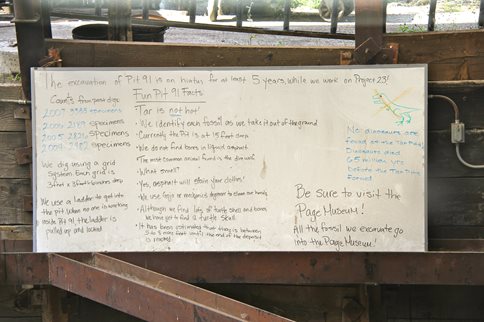 The excavation of Pit 91 is on hiatus for at least 5 years, while we work on Project 23!
Fun Pit 91 Facts
Counts from past digs
2007 - 3383 specimens
2006 - 2189 specimens
2005 - 2821 specimens
2004 - 2982 specimens
We dig using a grid
System. Each grid is
3 feet x 3 feet x 6 inches deep
We use a ladder to get into
the pit. When no one is working
inside Pit 91, the ladder is
pulled up and locked
Tar is not hot!
• We identify each fossil as we take it out of the ground
• Currently the Pit is at 15 feet deep
• We do not find bones in liquid asphalt
• The most common animal found is the dire wolf
• What smell?
• Yes, asphalt will stain your clothes!
• We use or mechanics degreaser to clean our hands
• Although we find lots of turtle shell and bones
We have yet to find a turtle skull
• It has been estimated that there is between
5 to 8 more feet until the end of the deposit
is reached
No dinosaurs are
found at the Tar Pits!
Dinosaurs died
65 million yrs
before the Tar Pits
formed
Be sure to visit the
Page Museum!
All the fossil we excavate go
into the Page Museum!